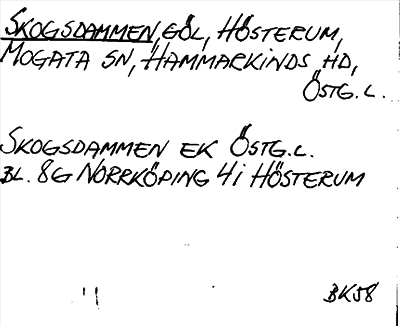 SKOGSDAMMEN, GÖL, HÖSTERUM,
MOGATA SN, HAMMARKINDS HD,
ÖSTG. L.
SKOGSDAMMEN EK ÖSTG. L.
BL. 8G NORRKÖPING 4i HÖSTERUM
BK58